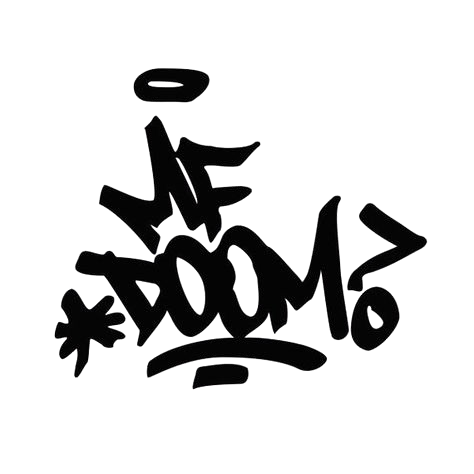 MF
*DOOM?